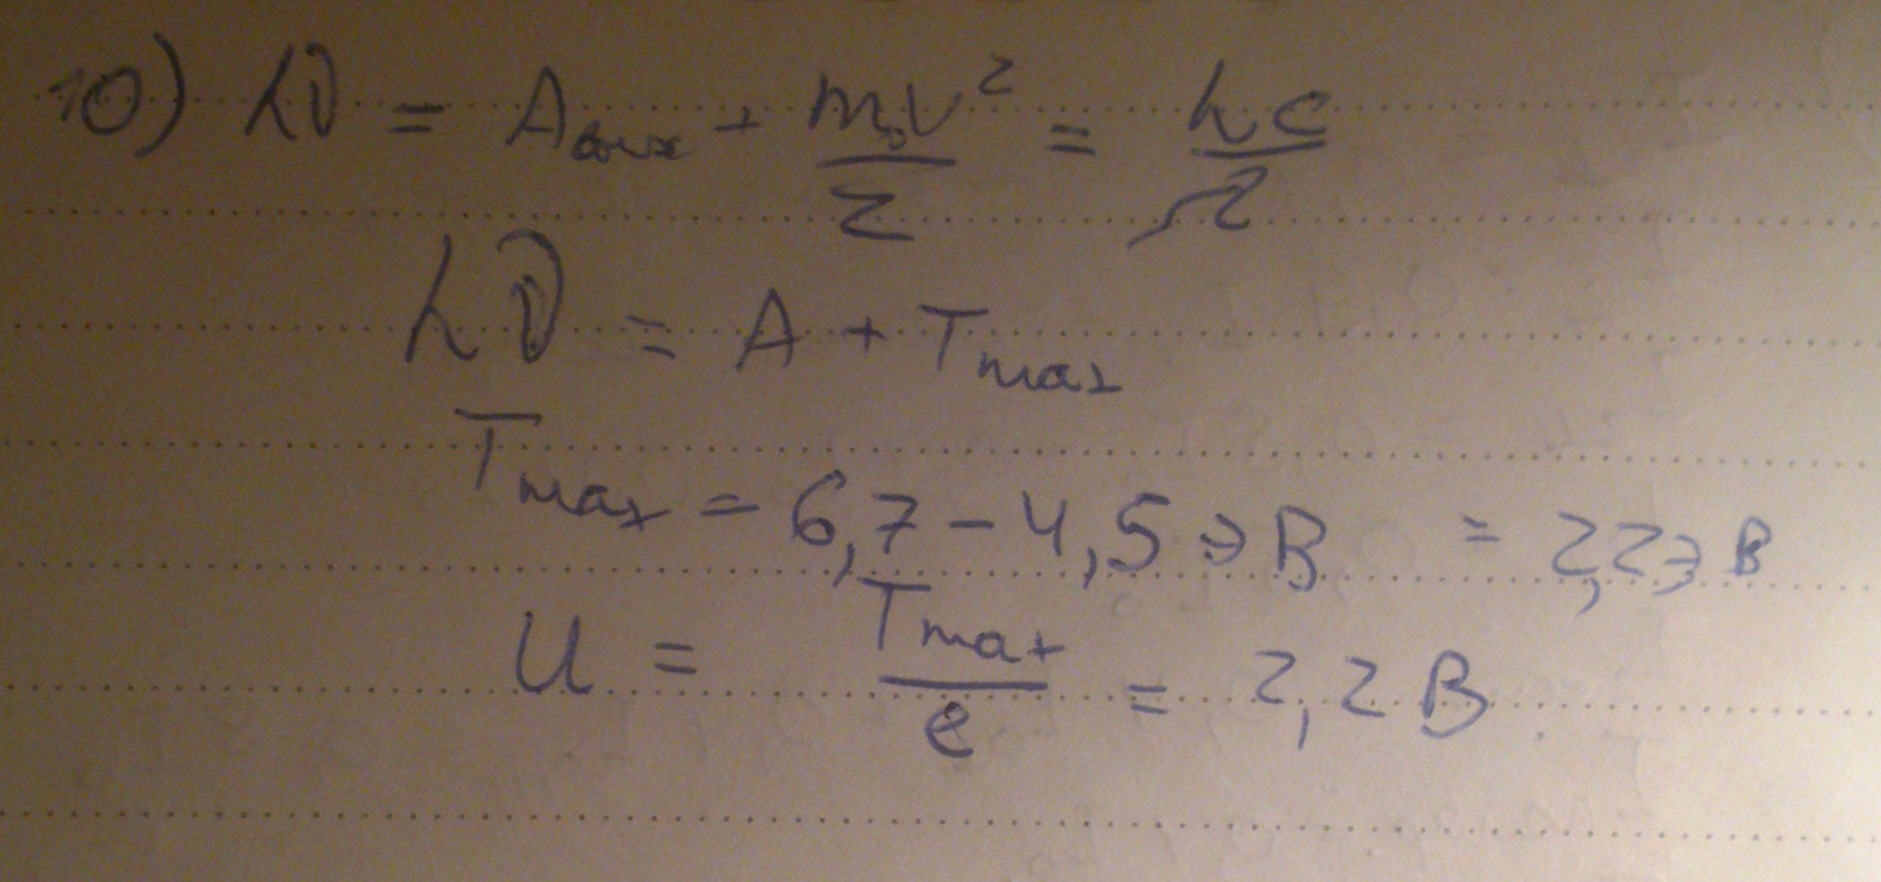 10) hν = Aвых + m₀v²/2 = hc/λ
hν = A + Tmax
Tmax = 6,7 - 4,5 эВ = 2,2 эВ
U = Tmax/e = 2,2 В